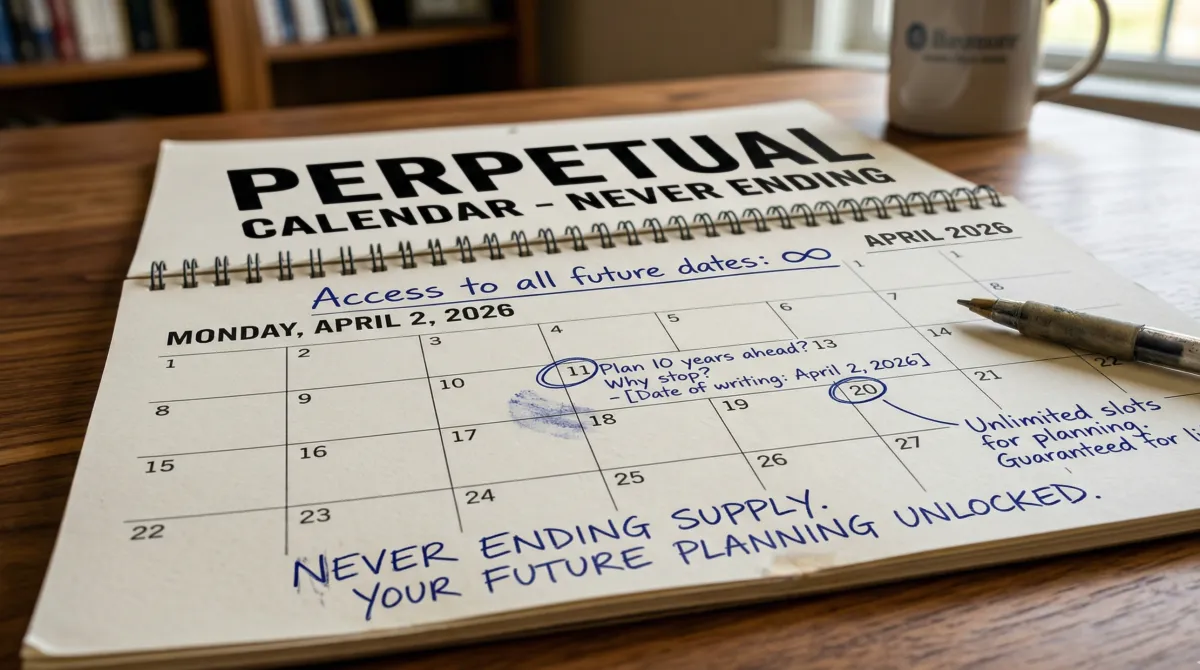 PERPETUAL
CALENDAR – NEVER ENDING
APRIL 2026
Access to all future dates: ∞
MONDAY, APRIL 2, 2026
1 2 3 4 5 6 7 8
1 1
8 9 10 11 13 14
Plan 10 years ahead?
Why stop?
- [Date of writing: April 2, 2026]
15 16 17 18 19 20 21 22
Unlimited slots
for planning.
Guaranteed for li
22 23 24 25 26 27
NEVER ENDING SUPPLY.
YOUR FUTURE PLANNING UNLOCKED.